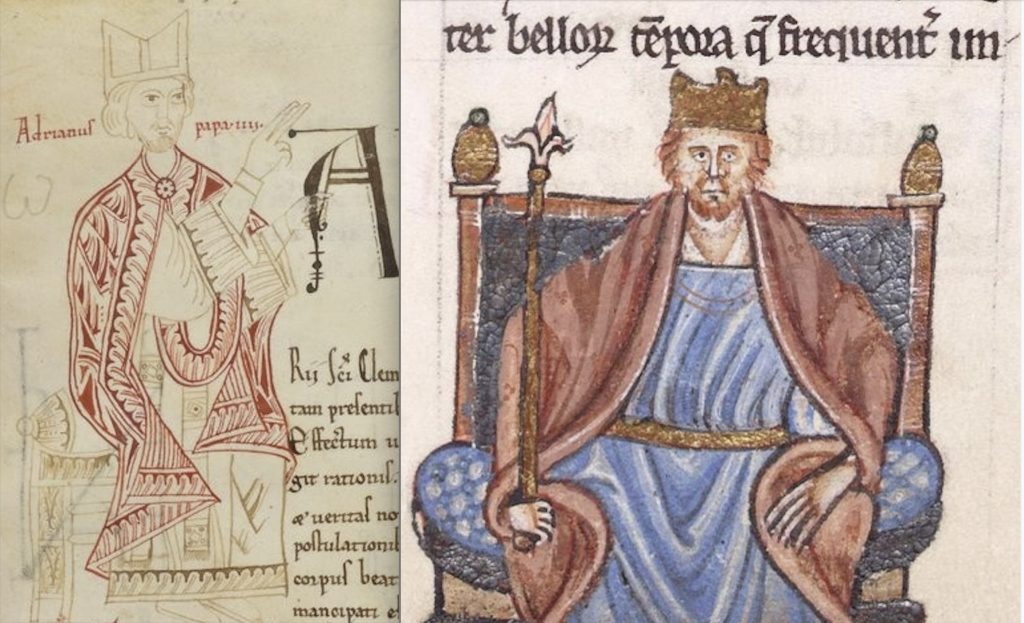 Adrianus papa·iiij·
A
Rij Sci Clem
tam presenti
Effectum u
git rationis.
æ ueritas no
postulationi
corpus beat
mancipati e
ter belloꝝ tēpora q̄ frequent᷑ im